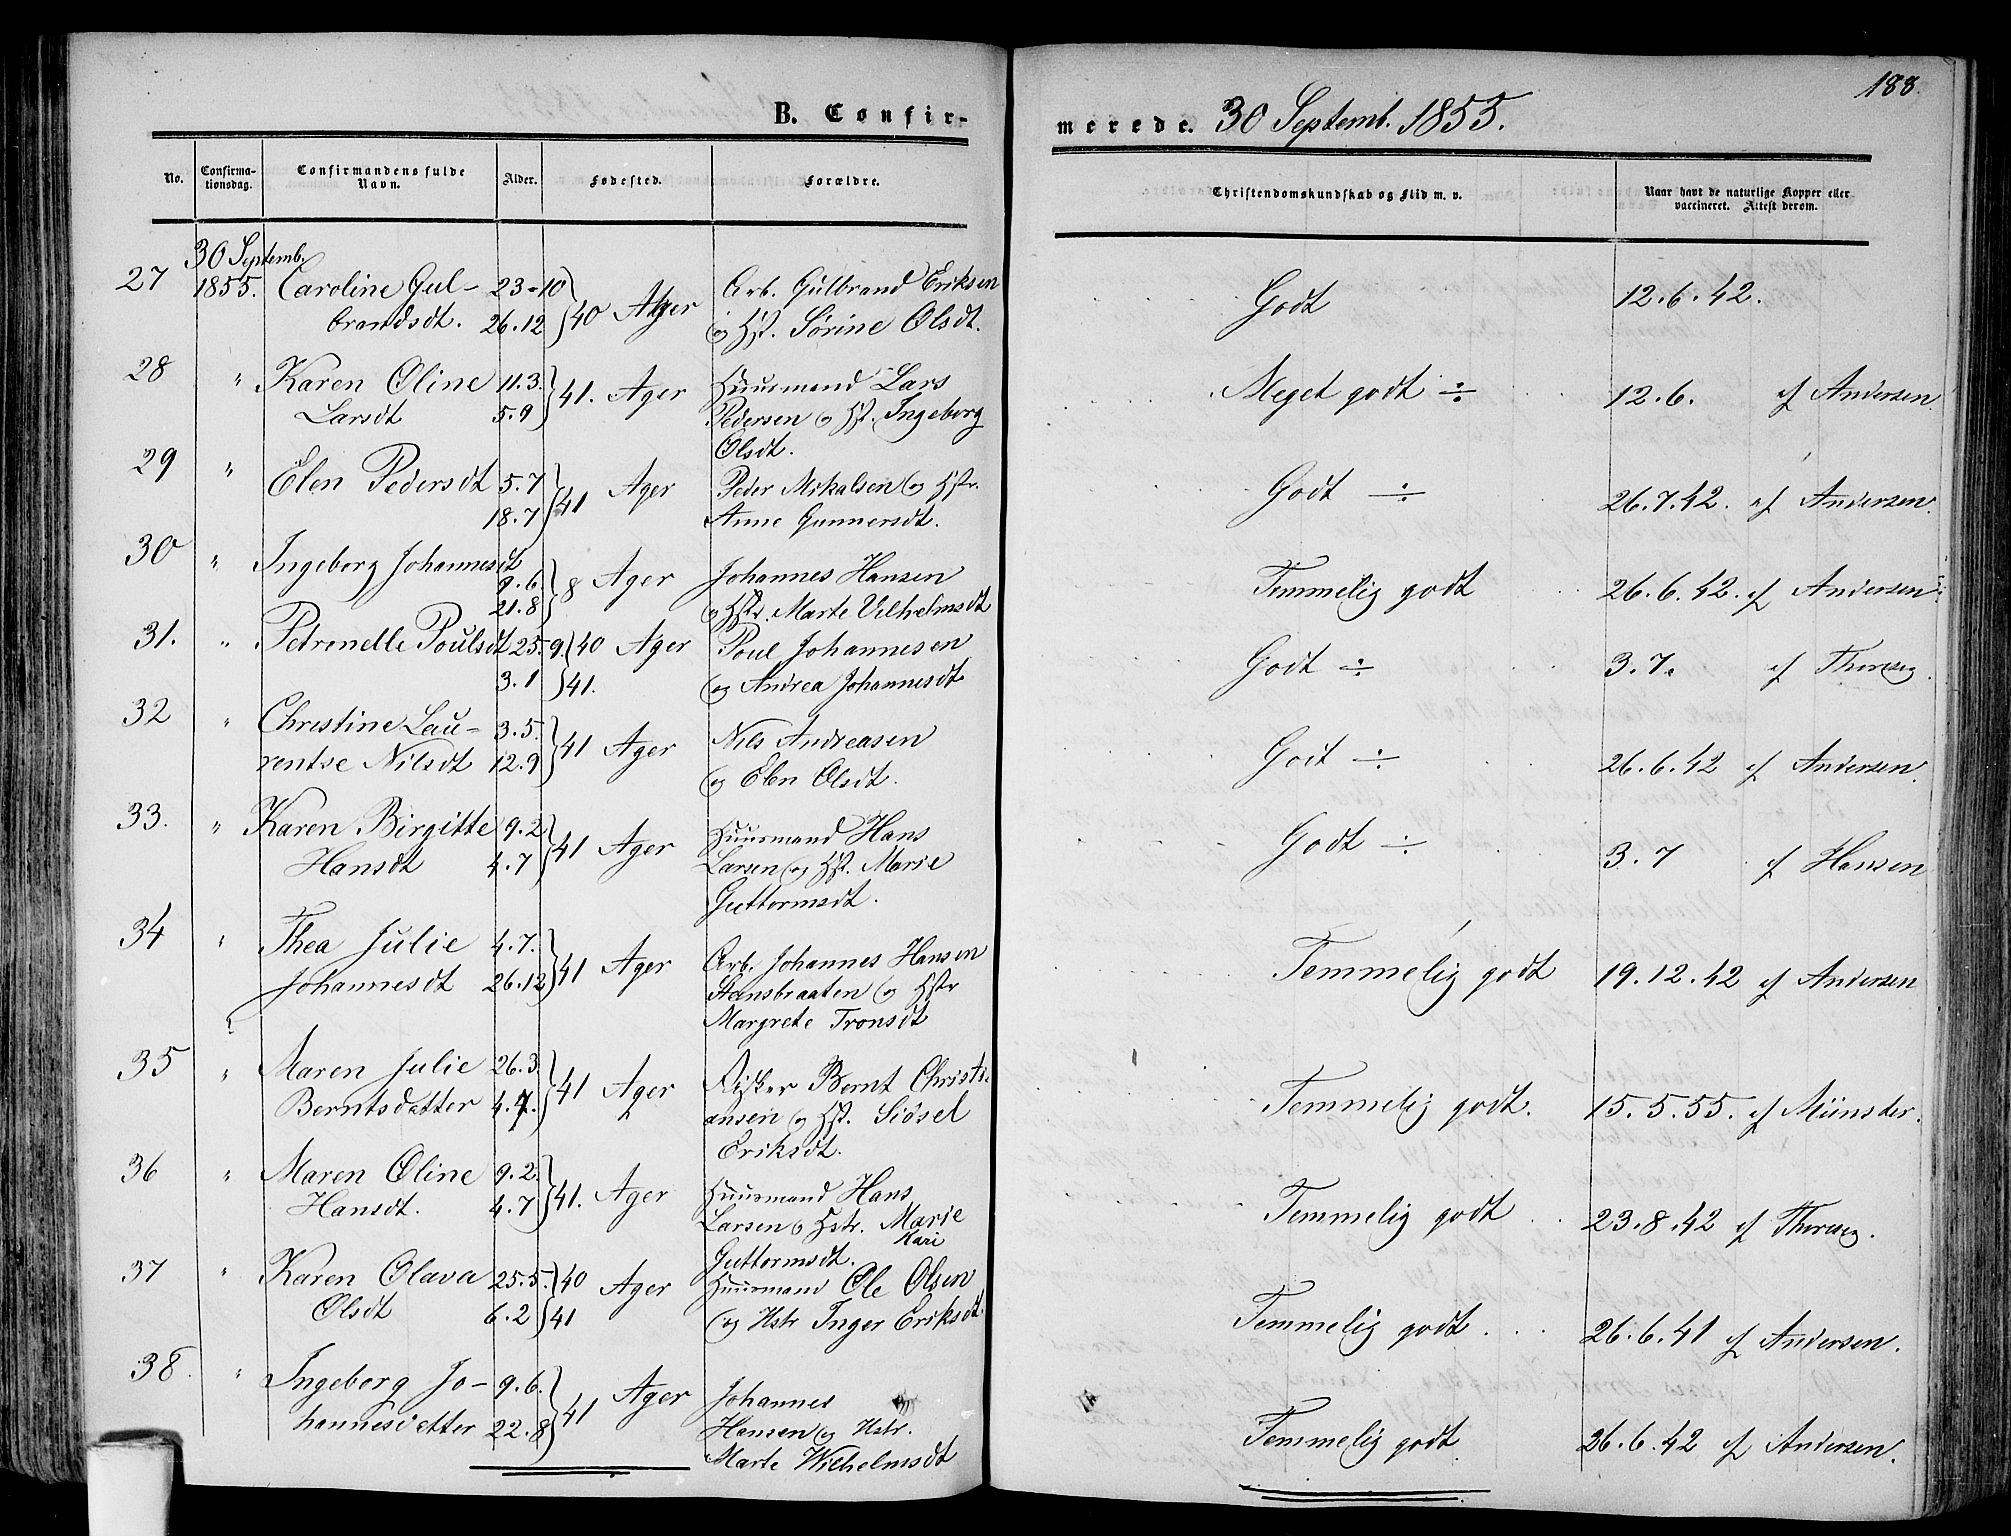 188.
B. Confir-
merede. 30 Septemb. 1855.
No.
Confirma-
tionsdag.
Confirmandens fulde
Navn.
Alder.
Fødested.
Forældre.
Christendomskundskab og Flid m. v.
Naar havt de naturlige Kopper eller
vaccineret. Attest derom.
30 Septemb.
27 1855. Caroline Gul- 23-10 } 40 Ager Arb. Gulbrand Eriksen Godt 12.6.42.
brandsdt. 26.12 og Hst. Sörine Olsdt.
28 " Karen Oline 11.3. } 41. Ager Huusmand Lars Meget godt ÷ 12.6. af Andersen
Larsdt 5.9 Pedersen og Hst. Ingeborg
Olsdt.
29 " Elen Pedersdt 5.7 } 41 Ager Peder Mikalsen og Hstr. Godt ÷ 26.7.42. af Andersen.
18.7 Anne Gunnersdt.
30 " Ingeborg Johannesdt 9.6 } 8 Ager Johannes Hansen Temmelig godt 26.6.42. af Andersen
21.8 og Hstr. Marte Vilhelmsdt
31. " Petronelle Poulsdt 25-9. } 40 Ager Poul Johannesen Godt ÷ 3.7. af
3.1 41. og Andrea Johannesdt
32 " Christine Lau- 3.5. } 41 Ager Nils Andreasen Godt ÷ 26.6.42 af Andersen.
rentse Nilsdt 12.9 og Elen Olsdt.
33. " Karen Birgitte 9.2 } 41 Ager Huusmand Hans Godt ÷ 3.7 af Hansen
Hansdt 4.7 Larsen og Hst. Marie
Guttormsdt.
34 " Thea Julie 4.7. } 41 Ager Arb. Johannes Hansen Temmelig godt 19.12.42 af Andersen
Johannesdt 26.12 Stensbraaten og Hstr
Margrete Tronsdt
35 " Maren Julie 26.3. } 41 Ager Fisker Bernt Christi- Temmelig godt. 15.5.55. af Münster.
Berntsdatter 4.7. ansen og Hst. Sidsel
Eriksdt.
36 " Maren Oline 9.2. } 41. Ager Huusmand Hans Temmelig godt 23.8.42 af
Hansdt. 4.7 Larsen og Hstr. Marie
Kari
Guttormsdt.
37 " Karen Olava 25.5. } 40 Ager Huusmand Ole Olsen Temmelig godt. 26.6.41 af Andersen.
Olsdt 6.2 41 og Hstr Inger Eriksdt.
38. " Ingeborg Jo- 9.6. } 41 Ager Johannes Temmelig godt 26.6.42 af Andersen.
hannesdatter 22.8 Hansen og Hstr.
Marte Wilhelmsdt